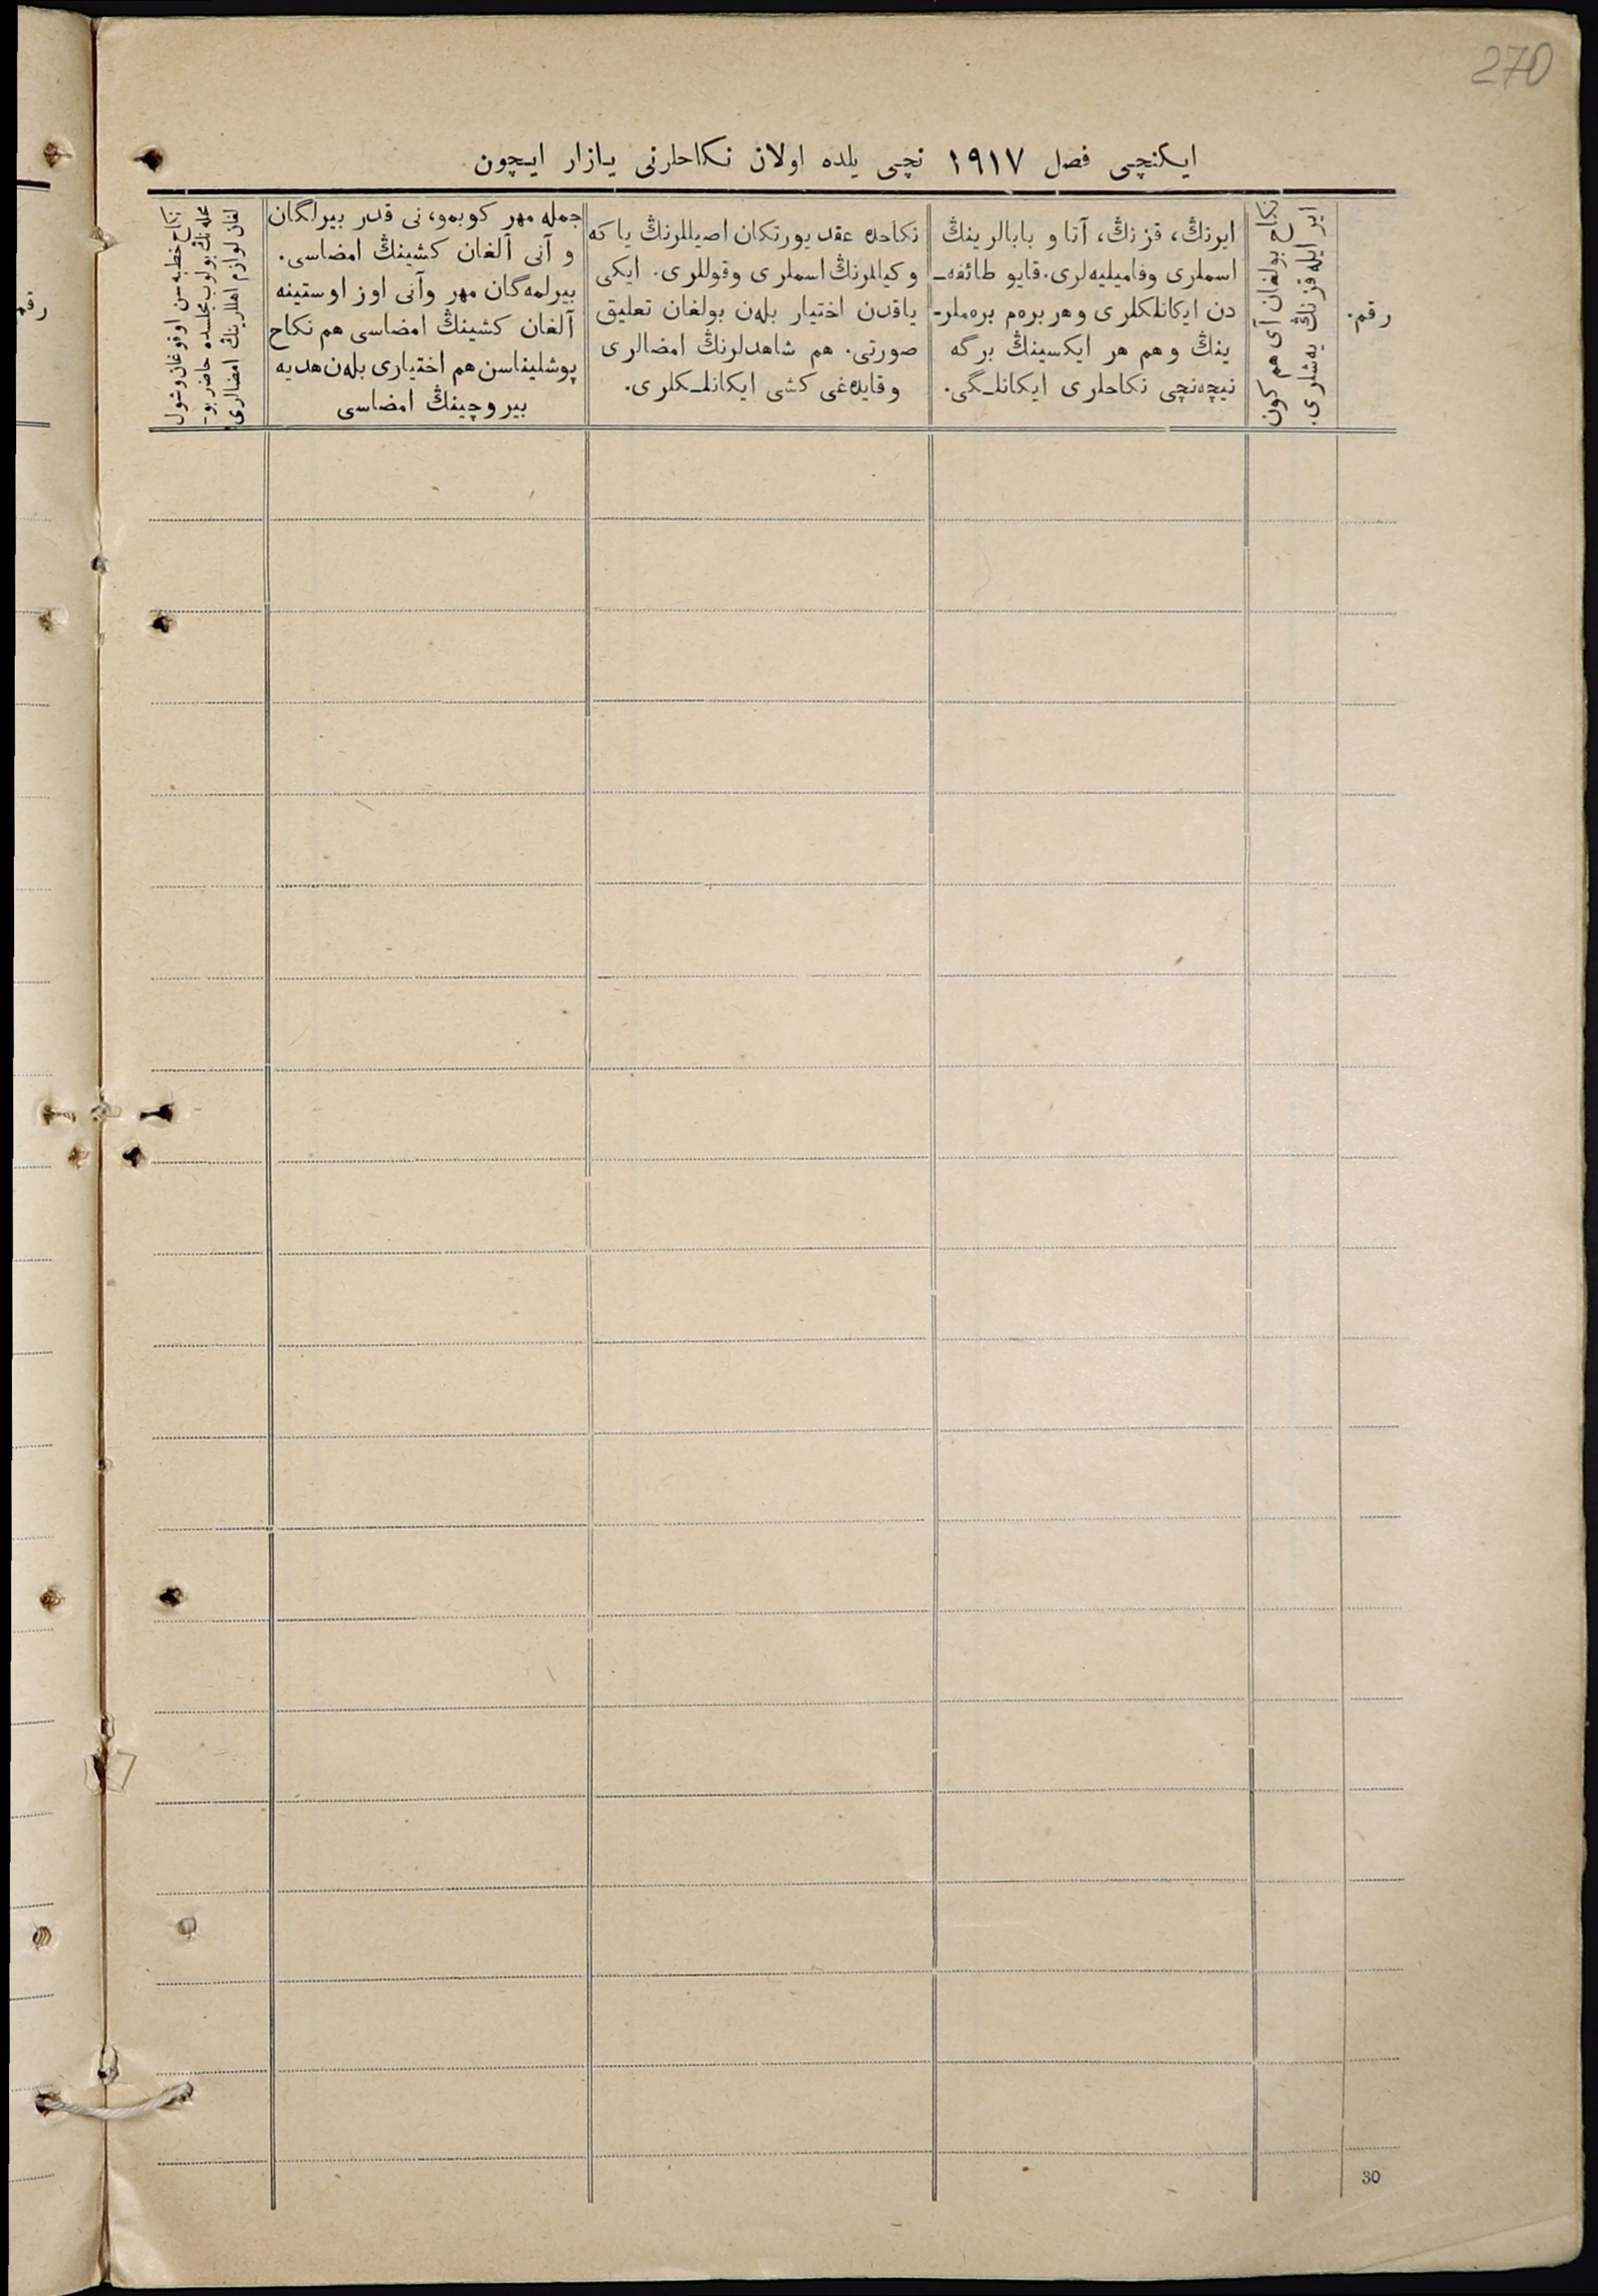 270
ایكنچی فصل ۱۹۱۷ نچی یلده اولان نكاحلرنی یازار ایچون
رقم.
نكاح بولغان آی هم كون
ایر ایله قزنڭ یەشلری.
ایرنڭ، قزنڭ، آتا و بابالرینڭ
اسملری وفامیلیەلری. قایو طائفەـ
دن ایكانلكلری وهر برەم برەملرـ
ینڭ وهم هر ایكسینڭ برگە
نیچەنچی نكاحلری ایكانلـگی.
نكاحدە عقد یورتكان اصیللرنڭ یاكە
وكیللرنڭ اسملری وقوللری. ایكی
یاقدن اختیار بلەن بولغان تعلیق
صورتی. هم شاهدلرنڭ امضالری
وقایدەغی كشی ایكانلـكلری.
جمله مهر كوبمو، نی قدر بیرلگان
و آنی آلغان كشینڭ امضاسی.
بیرلمەگان مهر وآنی اوز اوستینه
آلغان كشینڭ امضاسی هم نكاح
پوشلیناسن هم اختیاری بلەن هدیه
بیروچینڭ امضاسی
نكاح خطبەسن اوقوغان وشول
محلەنڭ بولوب مجلسدە حاضر بوـ
لغان لوازم اهللرینڭ امضالری
رقم
30